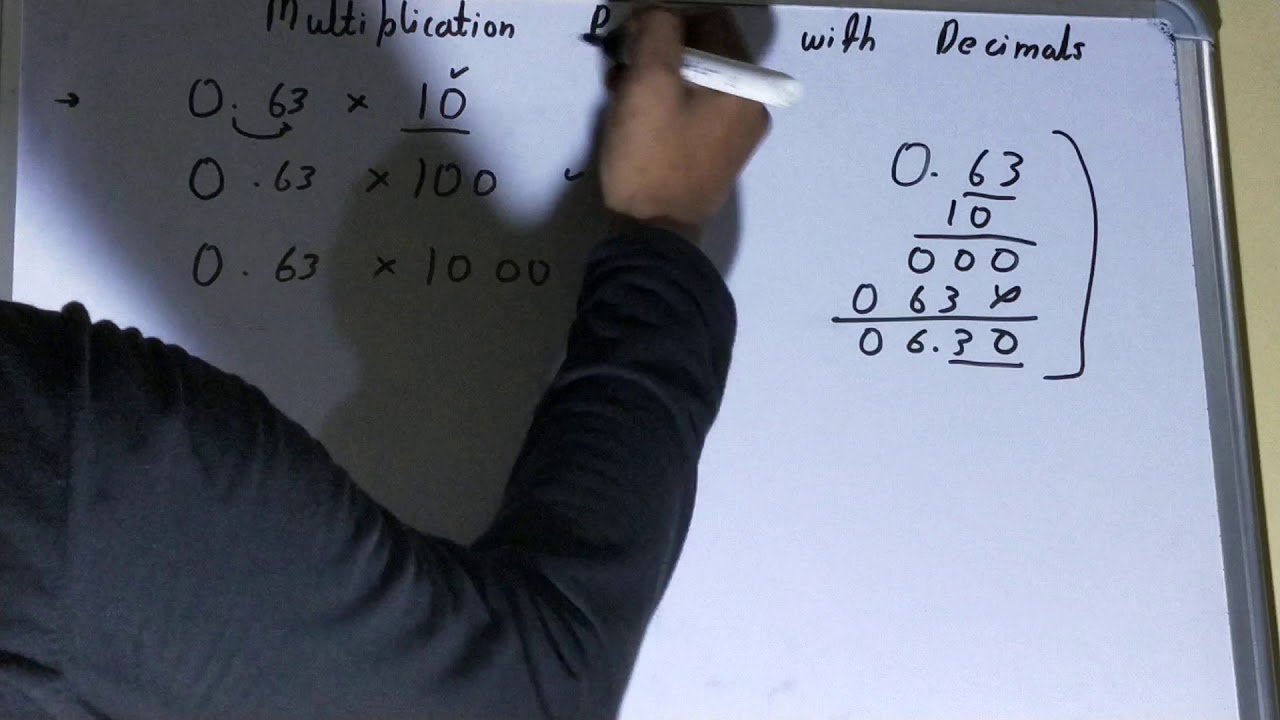 Multiplication P with Decimals
→ 0.63 × 10 ✓
0.63 × 100 ✓
0.63 × 1000
0.63
10
000
063×
06.30